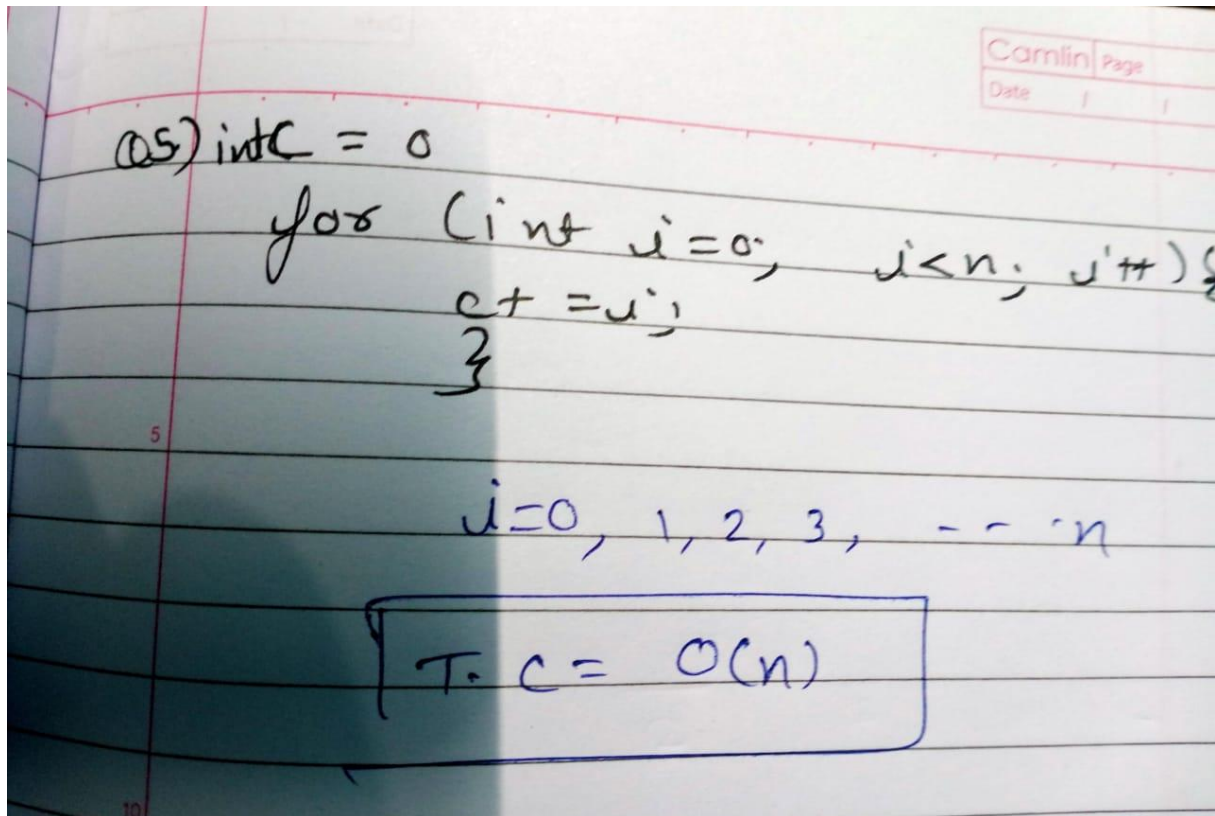 Camlin Page
Date / /
Q5) int C = 0
for (int i=0; i<n; i++) {
c+ =i;
}
5
i=0, 1, 2, 3, - - - n
T. C = O(n)
10